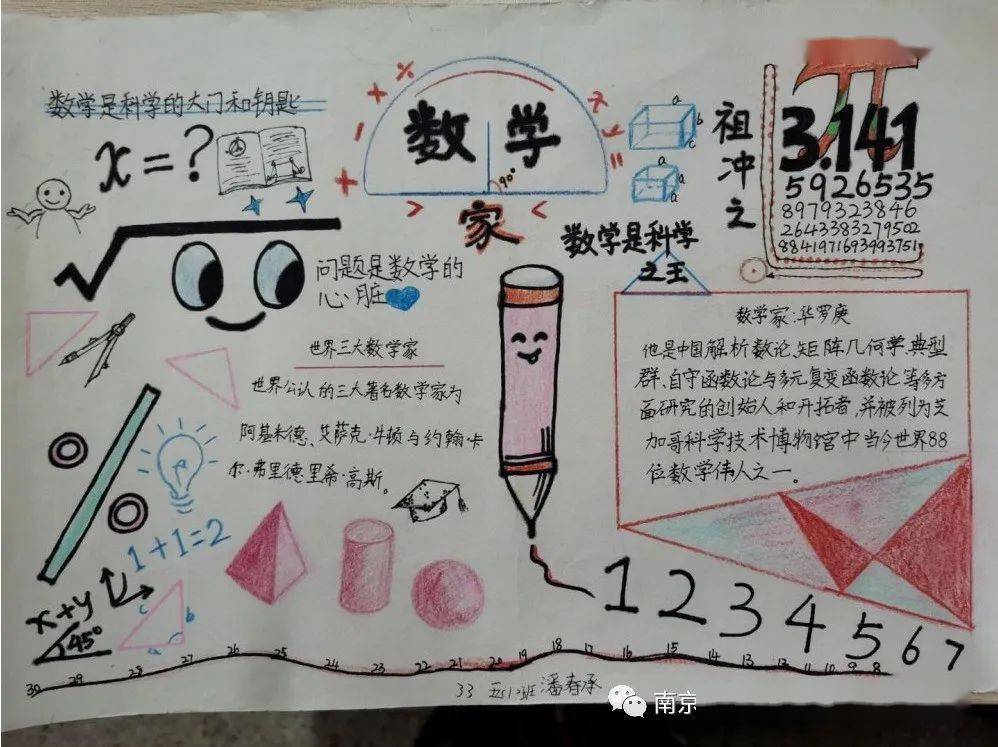 数学是科学的大门和钥匙
x=?
+ - × ÷
数学
90°
> <
家
a
b
c
a
a
祖冲之
π
3.141
5926535
8979323846
2643383279502
884197169399375 1
数学是科学
之王
问题是数学的
心脏
世界三大数学家
世界公认的三大著名数学家为
阿基米德、艾萨克·牛顿与约翰·卡
尔·弗里德里希·高斯。
数学家:华罗庚
他是中国解析数论、矩阵几何学、典型
群、自守函数论与多元复变函数论等多方
面研究的创始人和开拓者,并被列为芝
加哥科学技术博物馆中当今世界88
位数学伟人之一。
1+1=2
x+y
45°
c
b
a
1 2 3 4 5 6 7
30 29 28 27 26 25 24 23 22 21 20 19 18 17 16 15 14 13 12 11 10 9 8
33 五(1)班 潘春承
南京